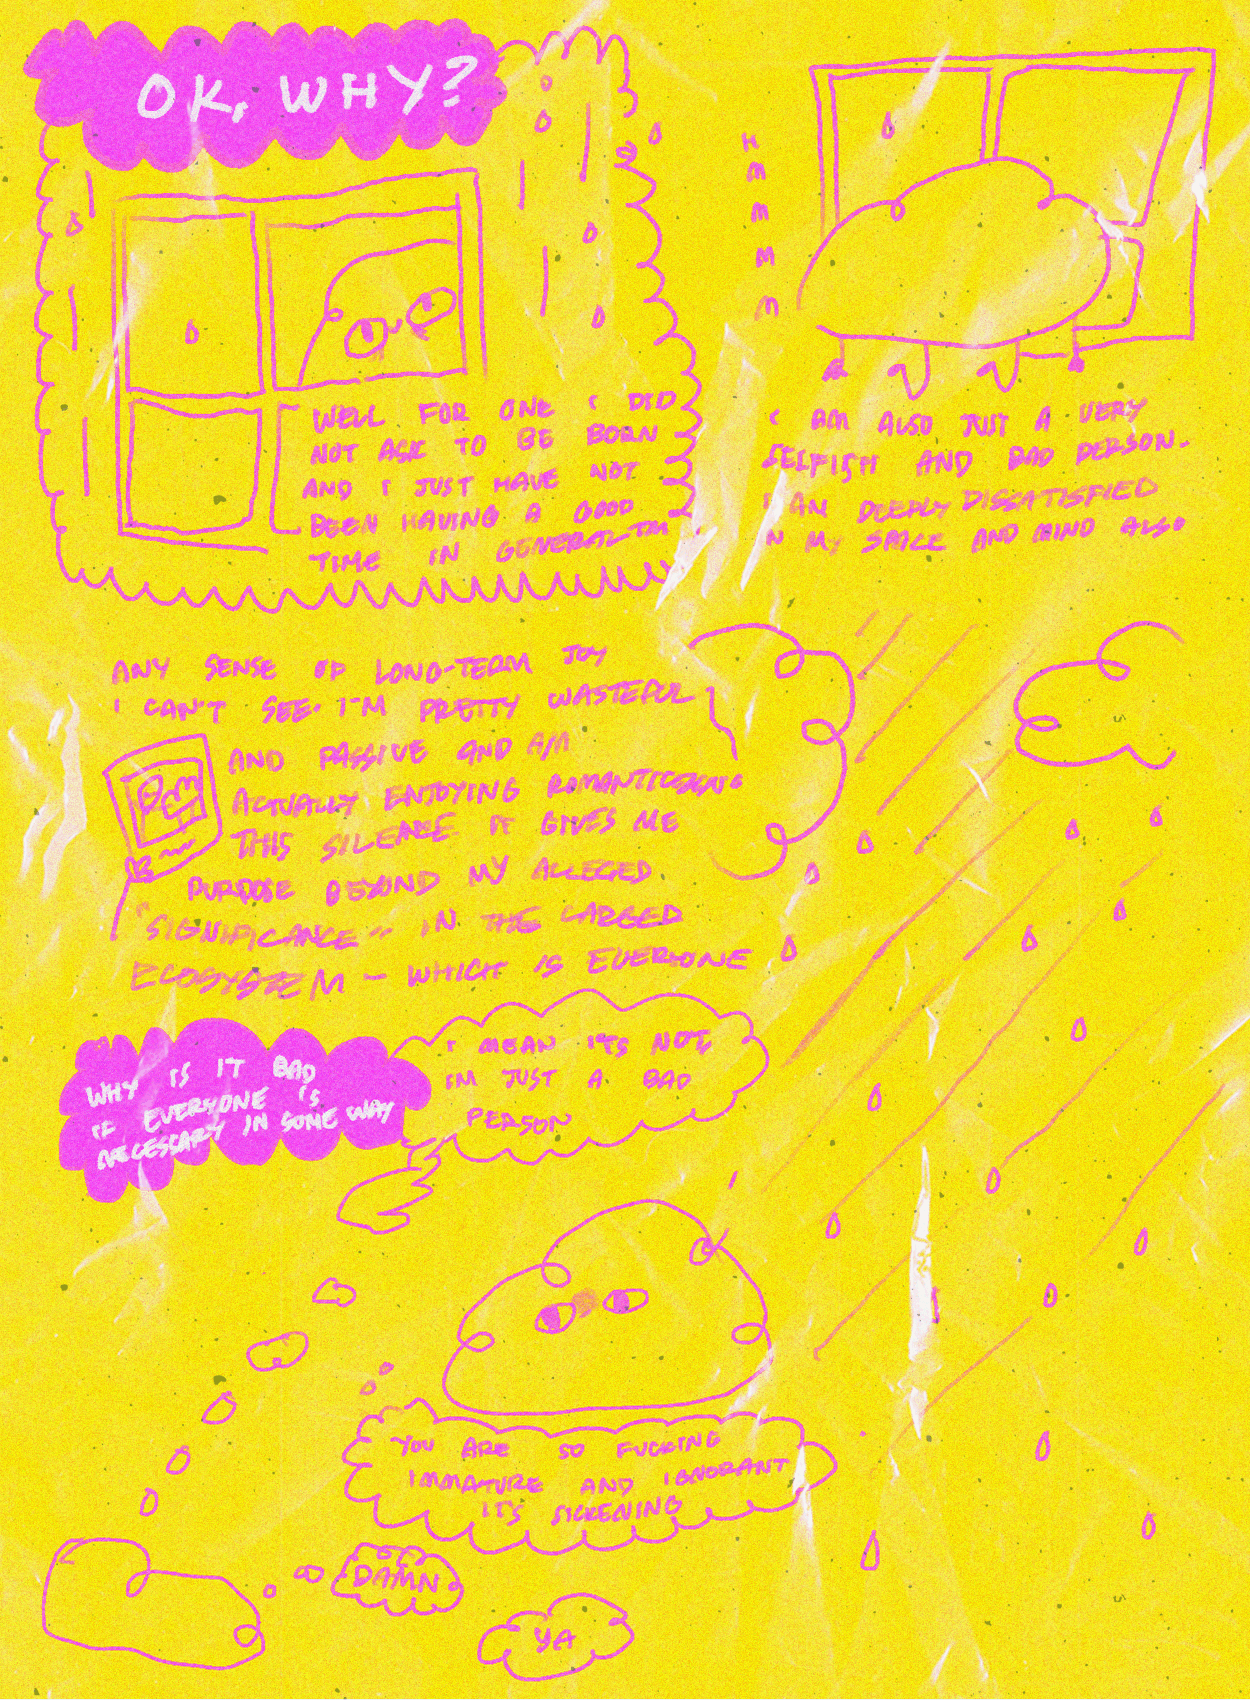 OK, WHY?
WELL FOR ONE I DID
NOT ASK TO BE BORN
AND I JUST HAVE NOT
BEEN HAVING A GOOD
TIME IN GENERAL™
HMMMM
I AM ALSO JUST A VERY
SELFISH AND BAD PERSON.
I AM DEEPLY DISSATISFIED
IN MY SPACE AND MIND ALSO
ANY SENSE OF LONG-TERM JOY
I CAN'T SEE. I'M PRETTY WASTEFUL
AND PASSIVE AND AM
ACTUALLY ENJOYING ROMANTICIZING
THIS SILENCE IT GIVES ME
PURPOSE BEYOND MY ALLEGED
"SIGNIFICANCE" IN THE LARGER
ECOSYSTEM - WHICH IS EVERYONE
WHY IS IT BAD
IF EVERYONE IS
NECESSARY IN SOME WAY
I MEAN IT'S NOT,
I'M JUST A BAD
PERSON
YOU ARE SO FUCKING
IMMATURE AND IGNORANT
IT'S SICKENING
DAMN
YA